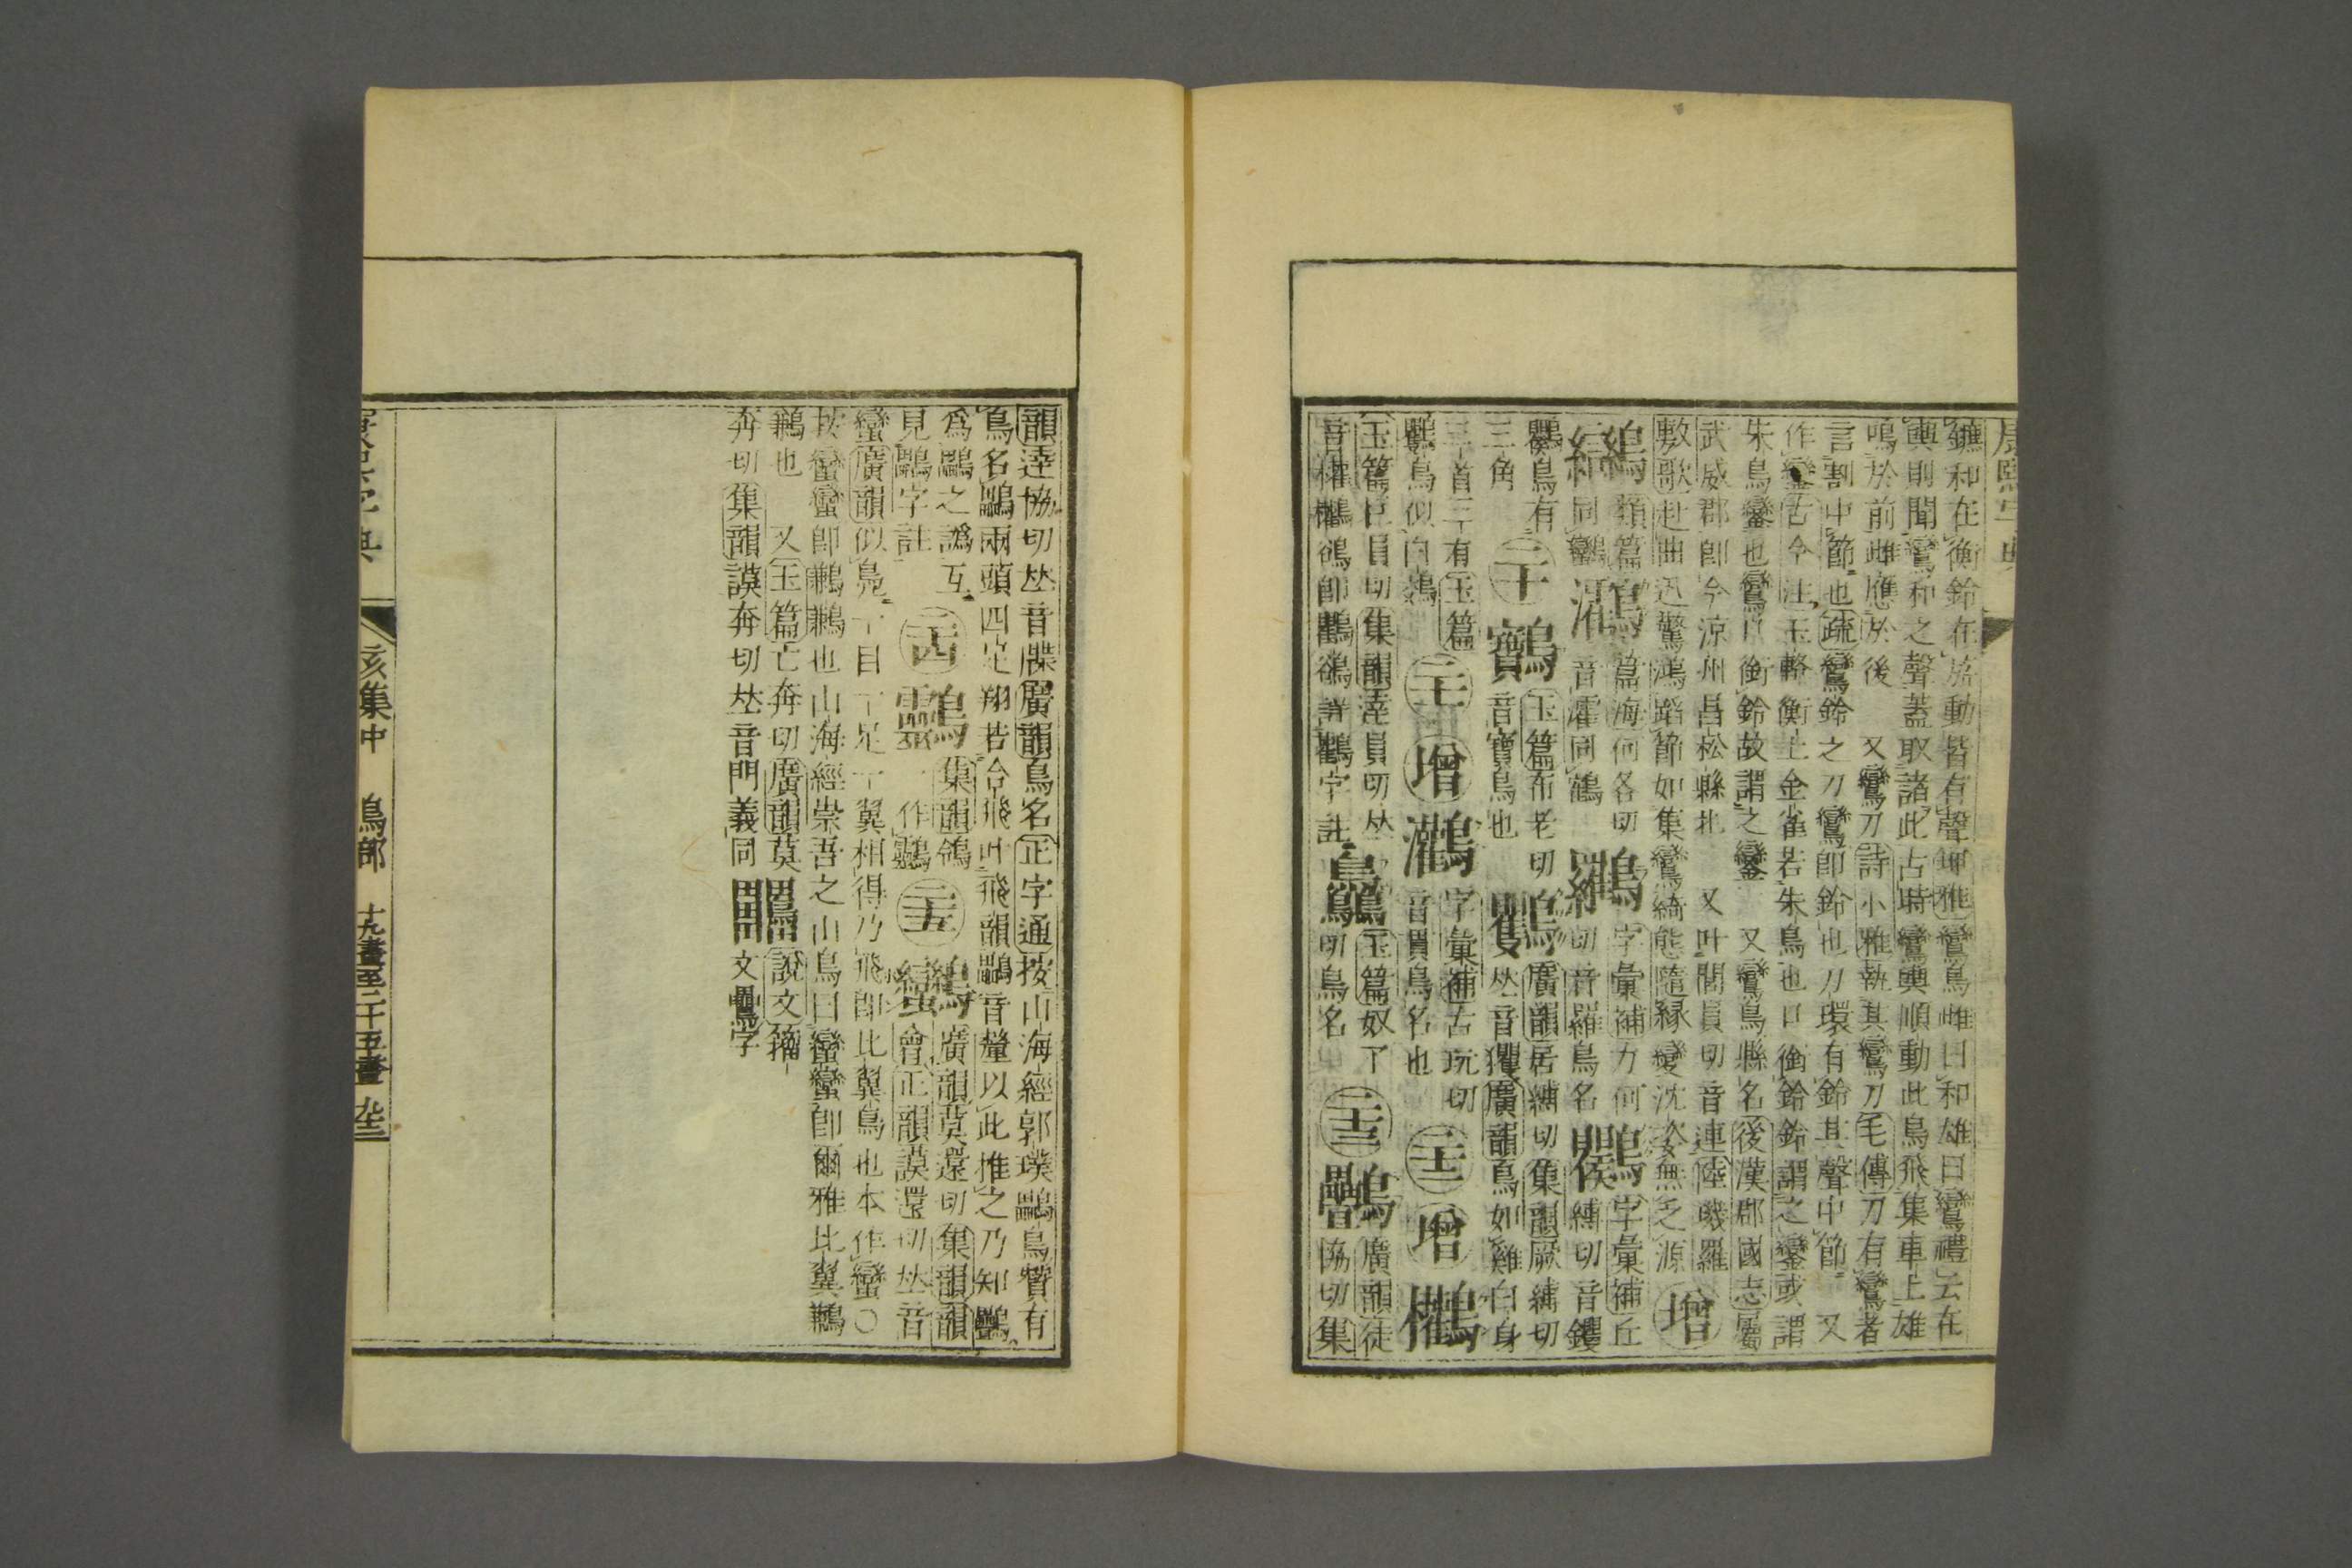 康熙字典
鑣和在衡鈴在旂動皆有聲埤雅鸞鳥雌曰和雄曰鸞禮云在
輿則聞鸞和之聲蓋取諸此古時鸞輿順動此鳥飛集車上雄
鳴於前雌應於後 又鸞刀詩小雅執其鸞刀毛傳刀有鸞者
言割中節也疏鸞鈴之刀鸞卽鈴也刀環有鈴其聲中節 又
作鑾古今注玉輅衡上金雀若朱鳥也口銜鈴鈴謂之鑾或謂
朱鳥鑾也鸞口銜鈴故謂之鑾 又鸞鳥縣名後漢郡國志屬
武威郡卽今涼州昌松縣北 又叶閭員切音連陸璣羅
敷歌赴曲迅驚鴻蹈節如集鸞綺態隨緣變沈姿無乏源 增
類篇 篇海何各切 字彙補力何 字彙補丘
同鸞 音㵶同鶴 切音羅鳥名 縛切音钁
鳥有 二十 玉篇布老切 廣韻居縛切集韻厥縛切
三角 音寶鳥也 𠀤音玃廣韻鳥如雞白身
三首三有玉篇 二十一 增 字彙補古玩切 二十二 增
鳥似白鷂 音貫鳥名也
玉篇巨員切集韻逵員切𠀤 玉篇奴了 二十三 廣韻徒
音權 卽 詳 字註 切鳥名 協切集
韻達協切𠀤音牒廣韻鳥名正字通按山海經郭璞鸓鳥贊有
鳥名鸓兩頭四足翔若合飛叶飛韻鸓音壘以此推之乃知
爲鸓之譌互 二十四 集韻鴒 二十五 廣韻莫還切集韻韻
見鸓字註 一作 會正韻謨還切𠀤音
蠻廣韻似鳧一目一足一翼相得乃飛卽比翼鳥也本作蠻○
按蠻蠻卽鶼鶼也山海經崇吾之山鳥曰蠻蠻卽爾雅比翼鶼
鶼也 又玉篇亡奔切廣韻莫 說文籀
奔切集韻謨奔切𠀤音門義同 文 字
康熙字典 亥集中 鳥部 十九畫至二十五畫